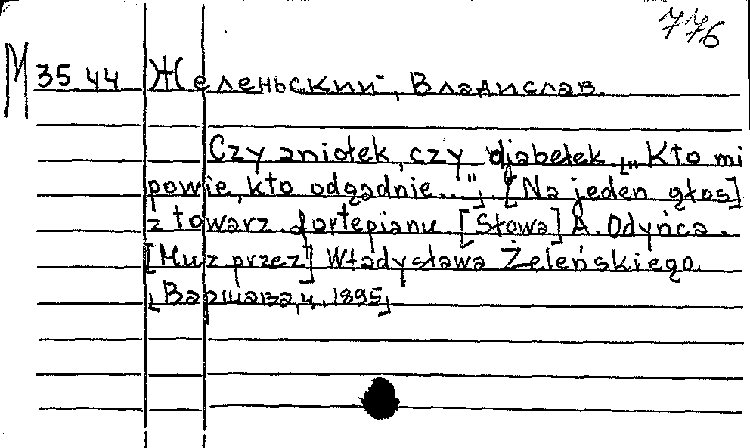 776
М 35 44 Желеньский, Владислав.
Czy aniołek, czy djabełek [„Kto mi
powie, kto odgadnie..."]. [Na jeden głos]
z towarz. fortepianu. [Słowa] A. Odyńca.
[Muz. przez] Władysława Żeleńskiego.
[Варшава, ц. 1895]